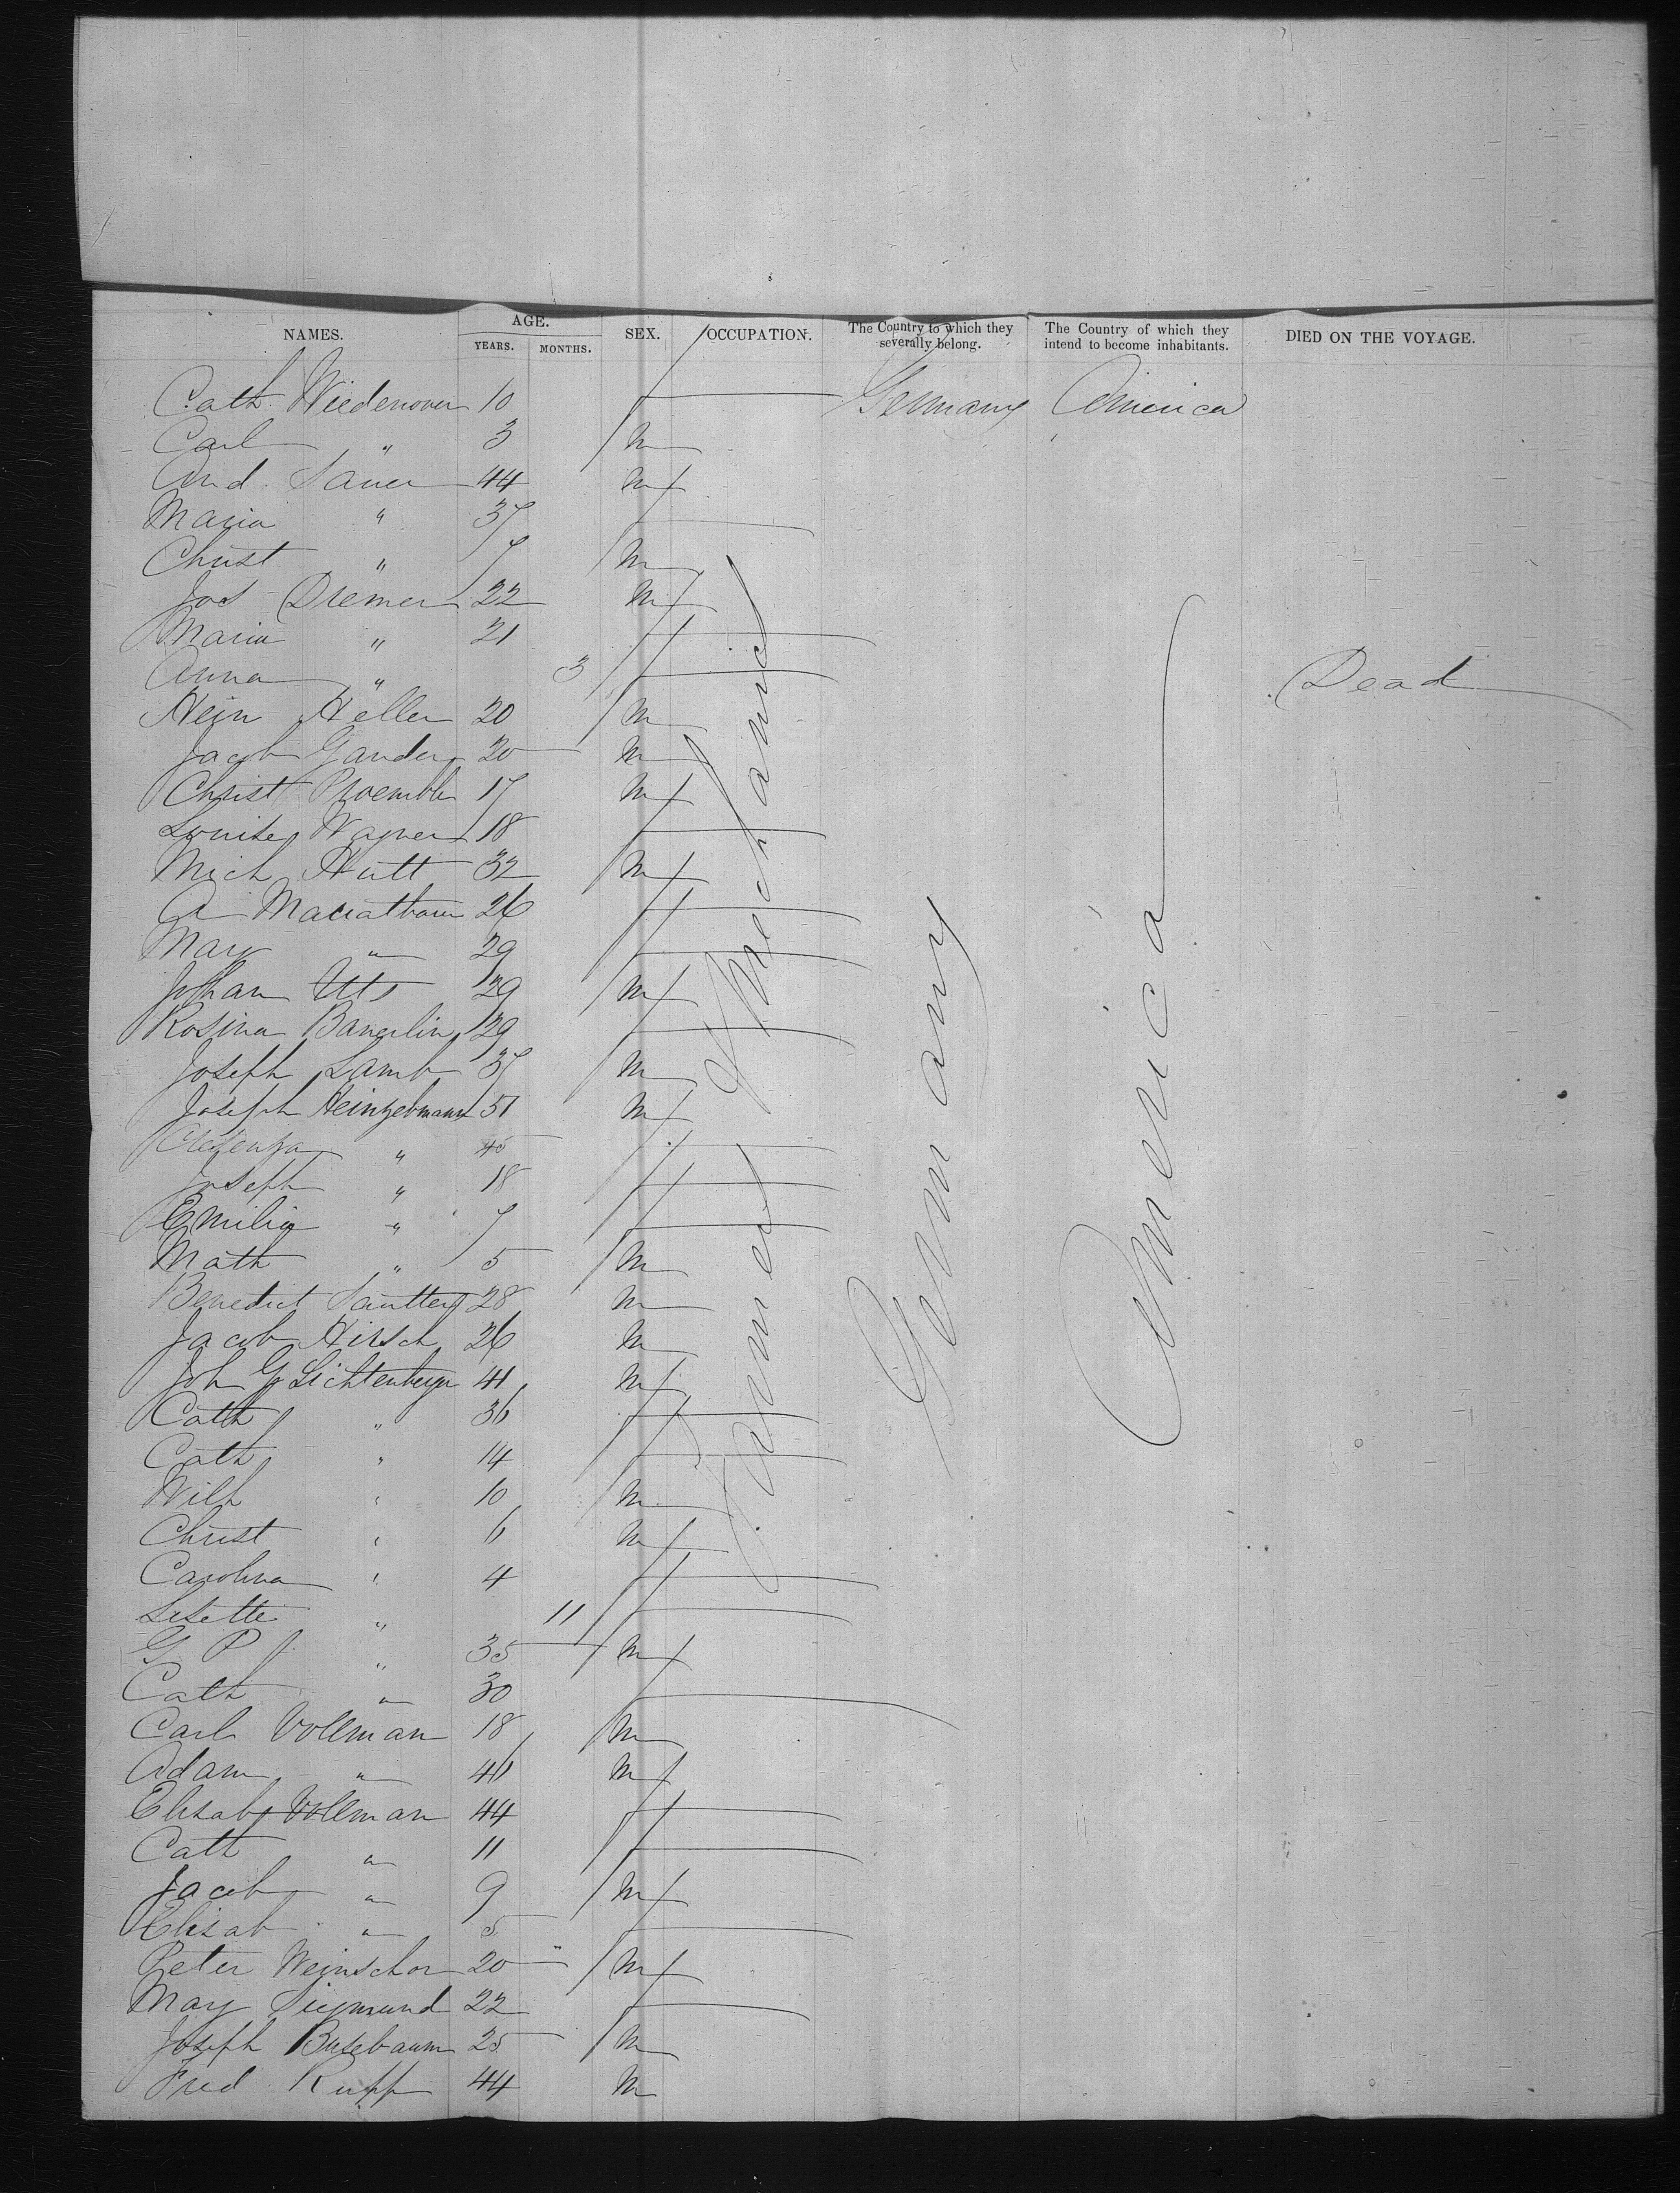 NAMES. AGE. YEARS. MONTHS. SEX. OCCUPATION. The Country to which they severally belong. The Country of which they intend to become inhabitants. DIED ON THE VOYAGE.
Cath 10 Germany America
Carl " 3 m
And. Sauer 44 m
Maria " 37
Christ " 7 m
Jos Dremer 22 m
Maria " 21
Anna " 3 Dead
Hein Heller 20 m
Jacob Gander 20 m
Christ 17 m
Louise Wagner 18
Mich Hutt 32 m
26
Mary " 29
Johan Uts 29 m
Rosina 29
Joseph Lamb 37 m
Joseph Heinzelmann 51 m
" 45
Joseph " 18
Emilia " 7
Math " 5 m
Benedict Sautter 28 m
Jacob Hirsch 26 m
Joh G Lichtenberger 41 m
Cath " 36
Cath " 14
Wilh " 10 m
Christ " 6 m
Carolina " 4
Lisette " 11
G P " 35 m
Cath " 30
Carl Vollman 18 m
Adam " 46 m
Elisab Vollman 44
Cath " 11
Jacob " 9 m
Elisab " 5
Peter Weinschor 20 m
Mary Siegmund 22
Joseph Busebaum 25 m
Fred Rupp 44 m
Farmers & Mechanics
Germany
America